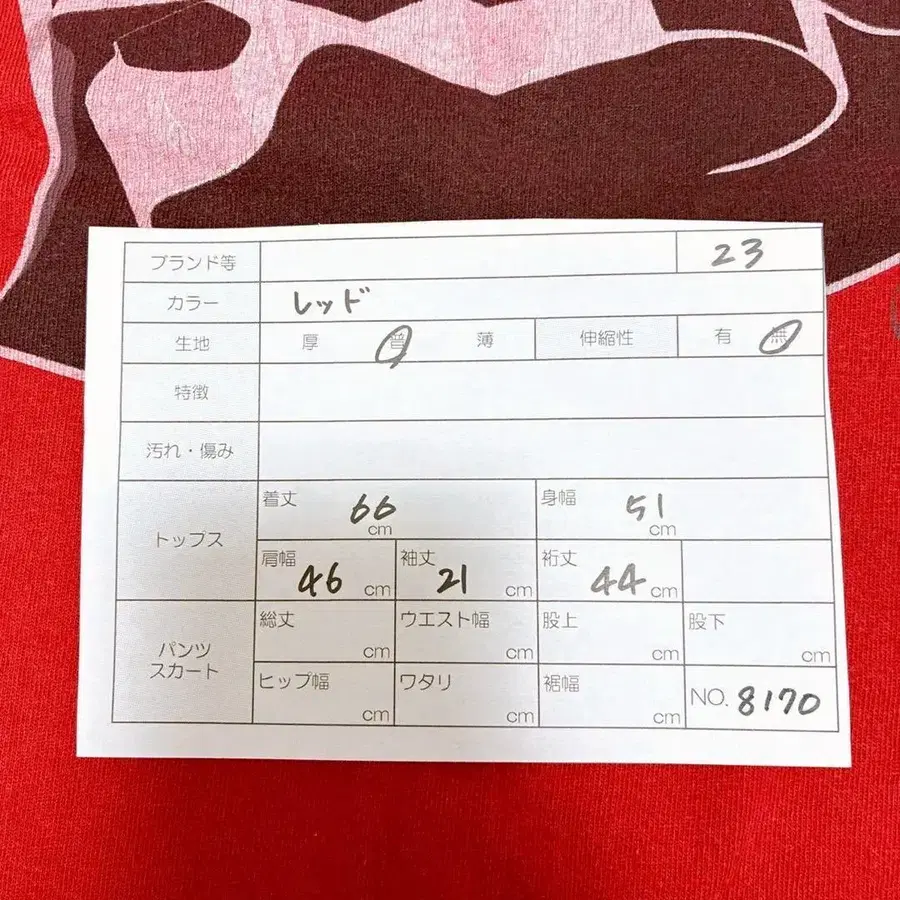 ブランド等 23
カラー レッド
生地 厚 普 薄 伸縮性 有 無
特徴
汚れ・傷み
トップス
着丈 66 cm 身幅 51 cm
肩幅 46 cm 袖丈 21 cm 裄丈 44 cm
パンツ
スカート
総丈 cm ウエスト幅 cm 股上 cm 股下 cm
ヒップ幅 cm ワタリ cm 裾幅 cm NO. 8170